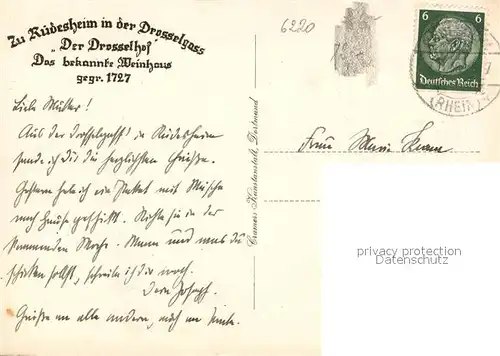 Zu Rüdesheim in der Drosselgass
„Der Drosselhof"
Das bekannte Weinhaus
gegr. 1727
6220
6 6
Deutsches Reich
(RHEIN)
Liebe Mutter!
Aus der Drosselgasse in Rüdesheim
sende ich dir die herzlichsten Grüße.
Gestern habe ich ein Paket mit Wäsche
nach Hause geschickt. in der
kommenden Woche. Wann und was du
schicken sollst, schreibe ich dir noch.
Dein Joseph.
Grüße an alle andern, auch an
Frau Maria
Cramers Kunstanstalt, Dortmund
privacy protection
Datenschutz